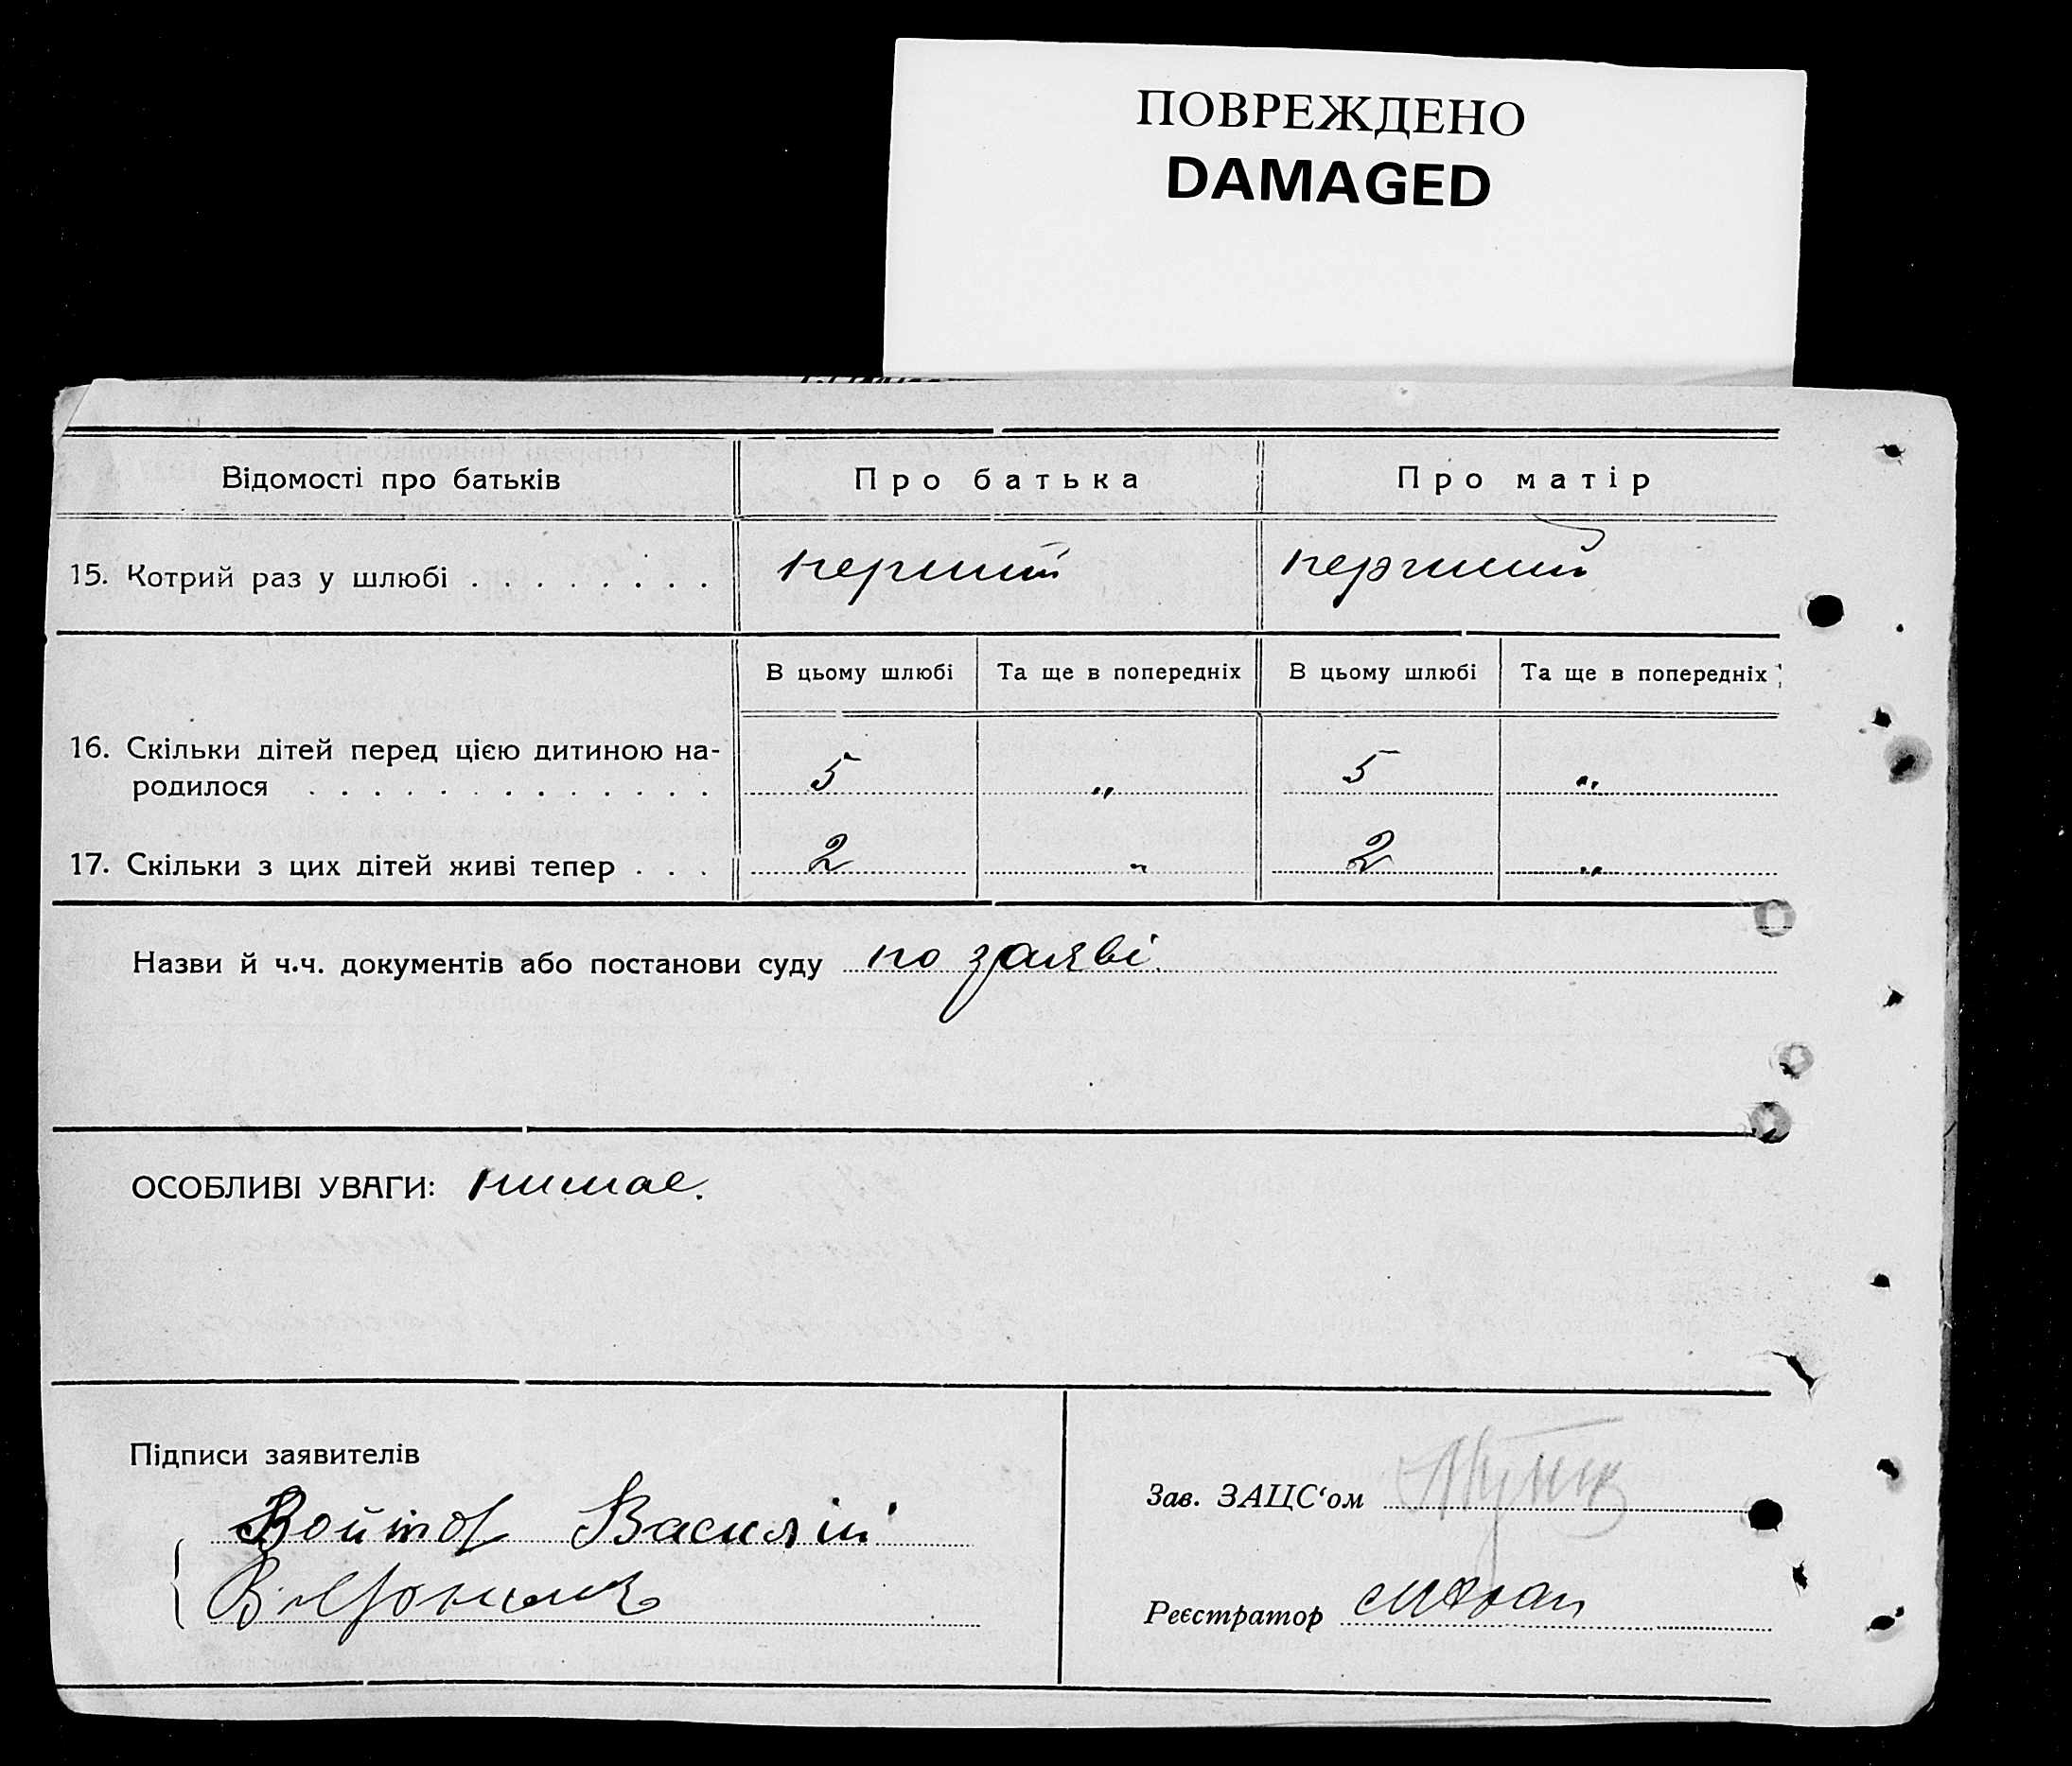 ПОВРЕЖДЕНО
DAMAGED
Відомості про батьків Про батька Про матір
15. Котрий раз у шлюбі . . . . . . . . перший перший
В цьому шлюбі Та ще в попередніх В цьому шлюбі Та ще в попередніх
16. Скільки дітей перед цією дитиною на-
родилося . . . . . . . . . . . . . 5 „ 5 „
17. Скільки з цих дітей живі тепер . . . 2 „ 2 „
Назви й ч.ч. документів або постанови суду по заяві.
ОСОБЛИВІ УВАГИ: нимає.
Підписи заявителів
Войтов Василій
Зав. ЗАЦС‘ом
Реєстратор